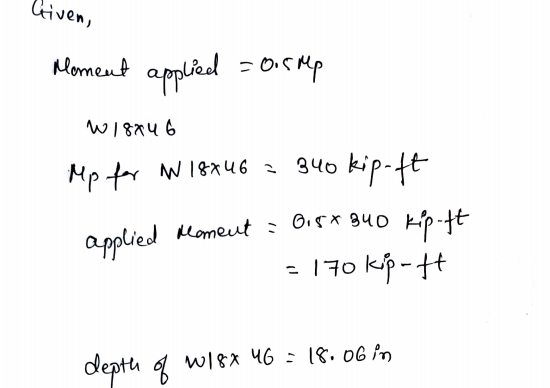 Given,
Moment applied = 0.5 Mp
W18x46
Mp for W18x46 = 340 kip-ft
applied Moment = 0.5 x 340 kip-ft
= 170 kip-ft
depth of W18x46 = 18.06 in